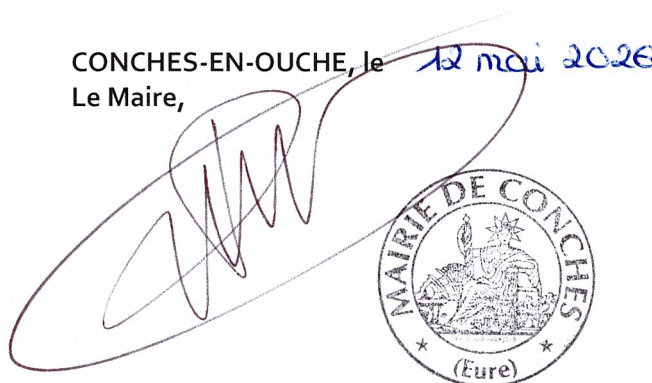 CONCHES-EN-OUCHE, le 12 mai 2026
Le Maire,
MAIRIE DE CONCHES
(Eure)